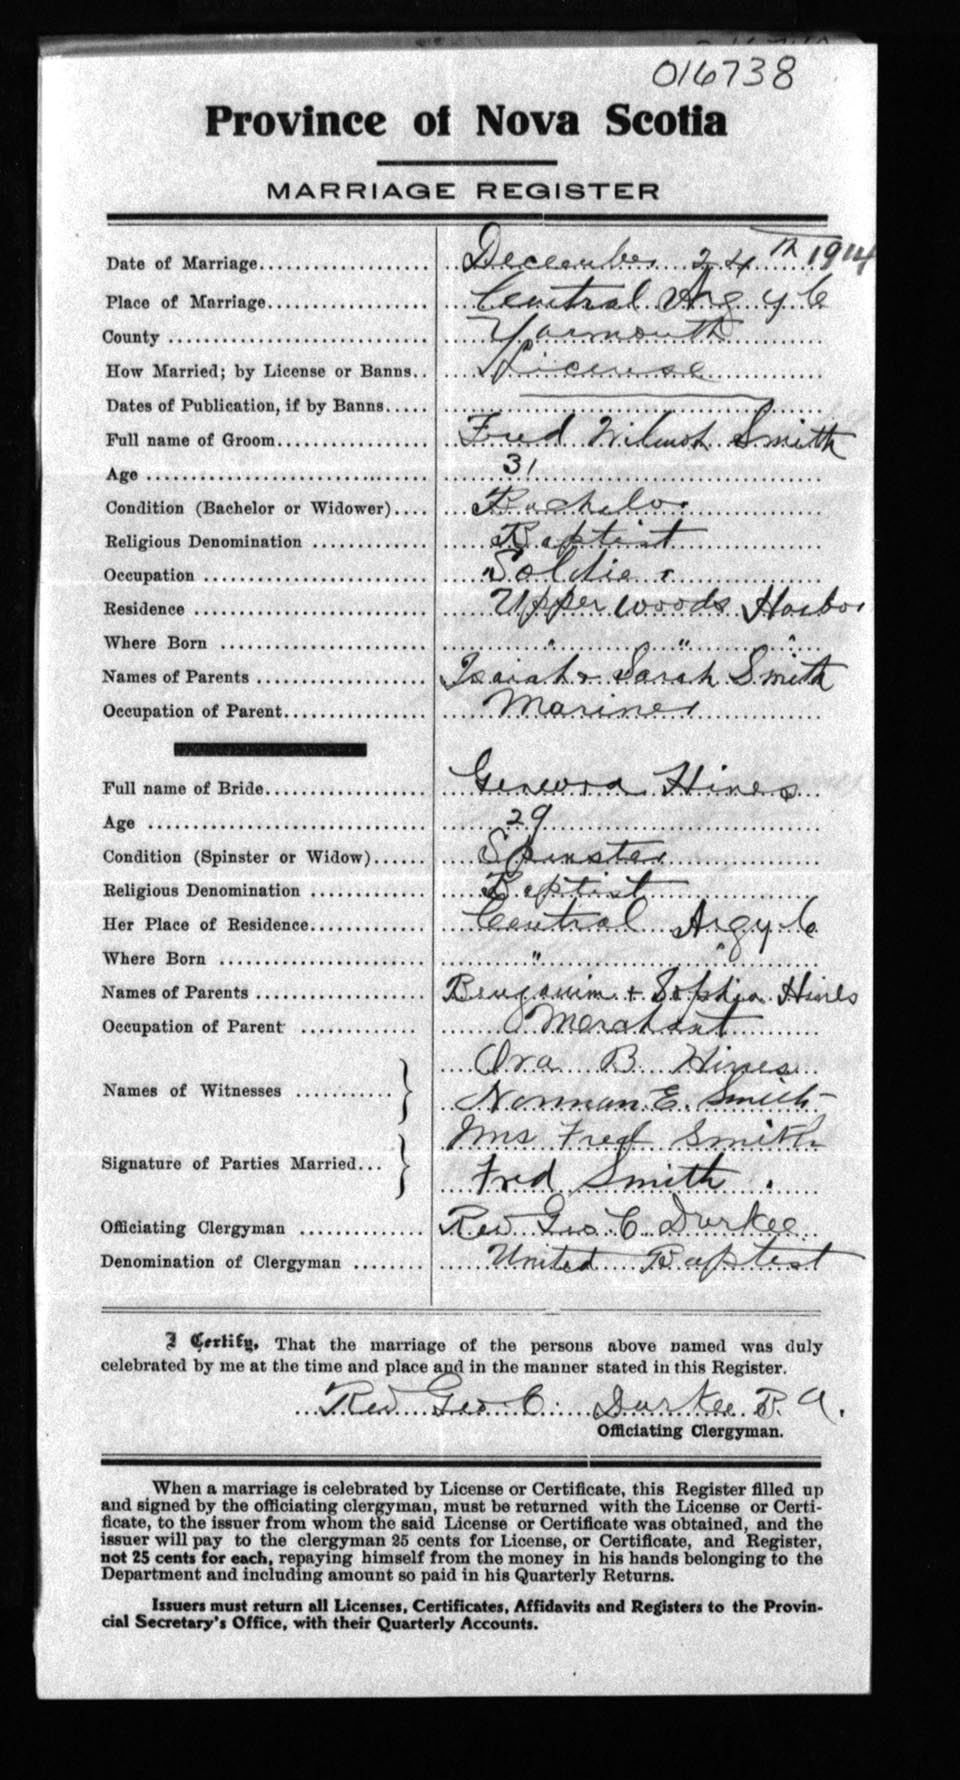 016738
Province of Nova Scotia
MARRIAGE REGISTER
Date of Marriage.................... December 24th 1914
Place of Marriage................... Central Argyle
County ............................. Yarmouth
How Married; by License or Banns.. License
Dates of Publication, if by Banns.....
Full name of Groom.................. Fred Wilmot Smith
Age ................................ 31
Condition (Bachelor or Widower).... Bachelor
Religious Denomination ............. Baptist
Occupation ......................... Soldier
Residence .......................... Upper Woods Harbor
Where Born ......................... " " "
Names of Parents ................... Isaiah & Sarah Smith
Occupation of Parent................ Mariner
Full name of Bride.................. Hines
Age ................................ 29
Condition (Spinster or Widow)...... Spinster
Religious Denomination ............. Baptist
Her Place of Residence.............. Central Argyle
Where Born ......................... " "
Names of Parents ................... Benjamin + Sophia Hines
Occupation of Parent ............... Merchant
Names of Witnesses ........... } Ora B Hines
Norman E. Smith
Signature of Parties Married... } Mrs Fred Smith
Fred Smith
Officiating Clergyman .............. Rev Geo C Durkee
Denomination of Clergyman ........ United Baptist
I Certify, That the marriage of the persons above named was duly
celebrated by me at the time and place and in the manner stated in this Register.
Rev Geo C. Durkee B. A.
Officiating Clergyman.
When a marriage is celebrated by License or Certificate, this Register filled up
and signed by the officiating clergyman, must be returned with the License or Certi-
ficate, to the issuer from whom the said License or Certificate was obtained, and the
issuer will pay to the clergyman 25 cents for License, or Certificate, and Register,
not 25 cents for each, repaying himself from the money in his hands belonging to the
Department and including amount so paid in his Quarterly Returns.
Issuers must return all Licenses, Certificates, Affidavits and Registers to the Provin-
cial Secretary's Office, with their Quarterly Accounts.